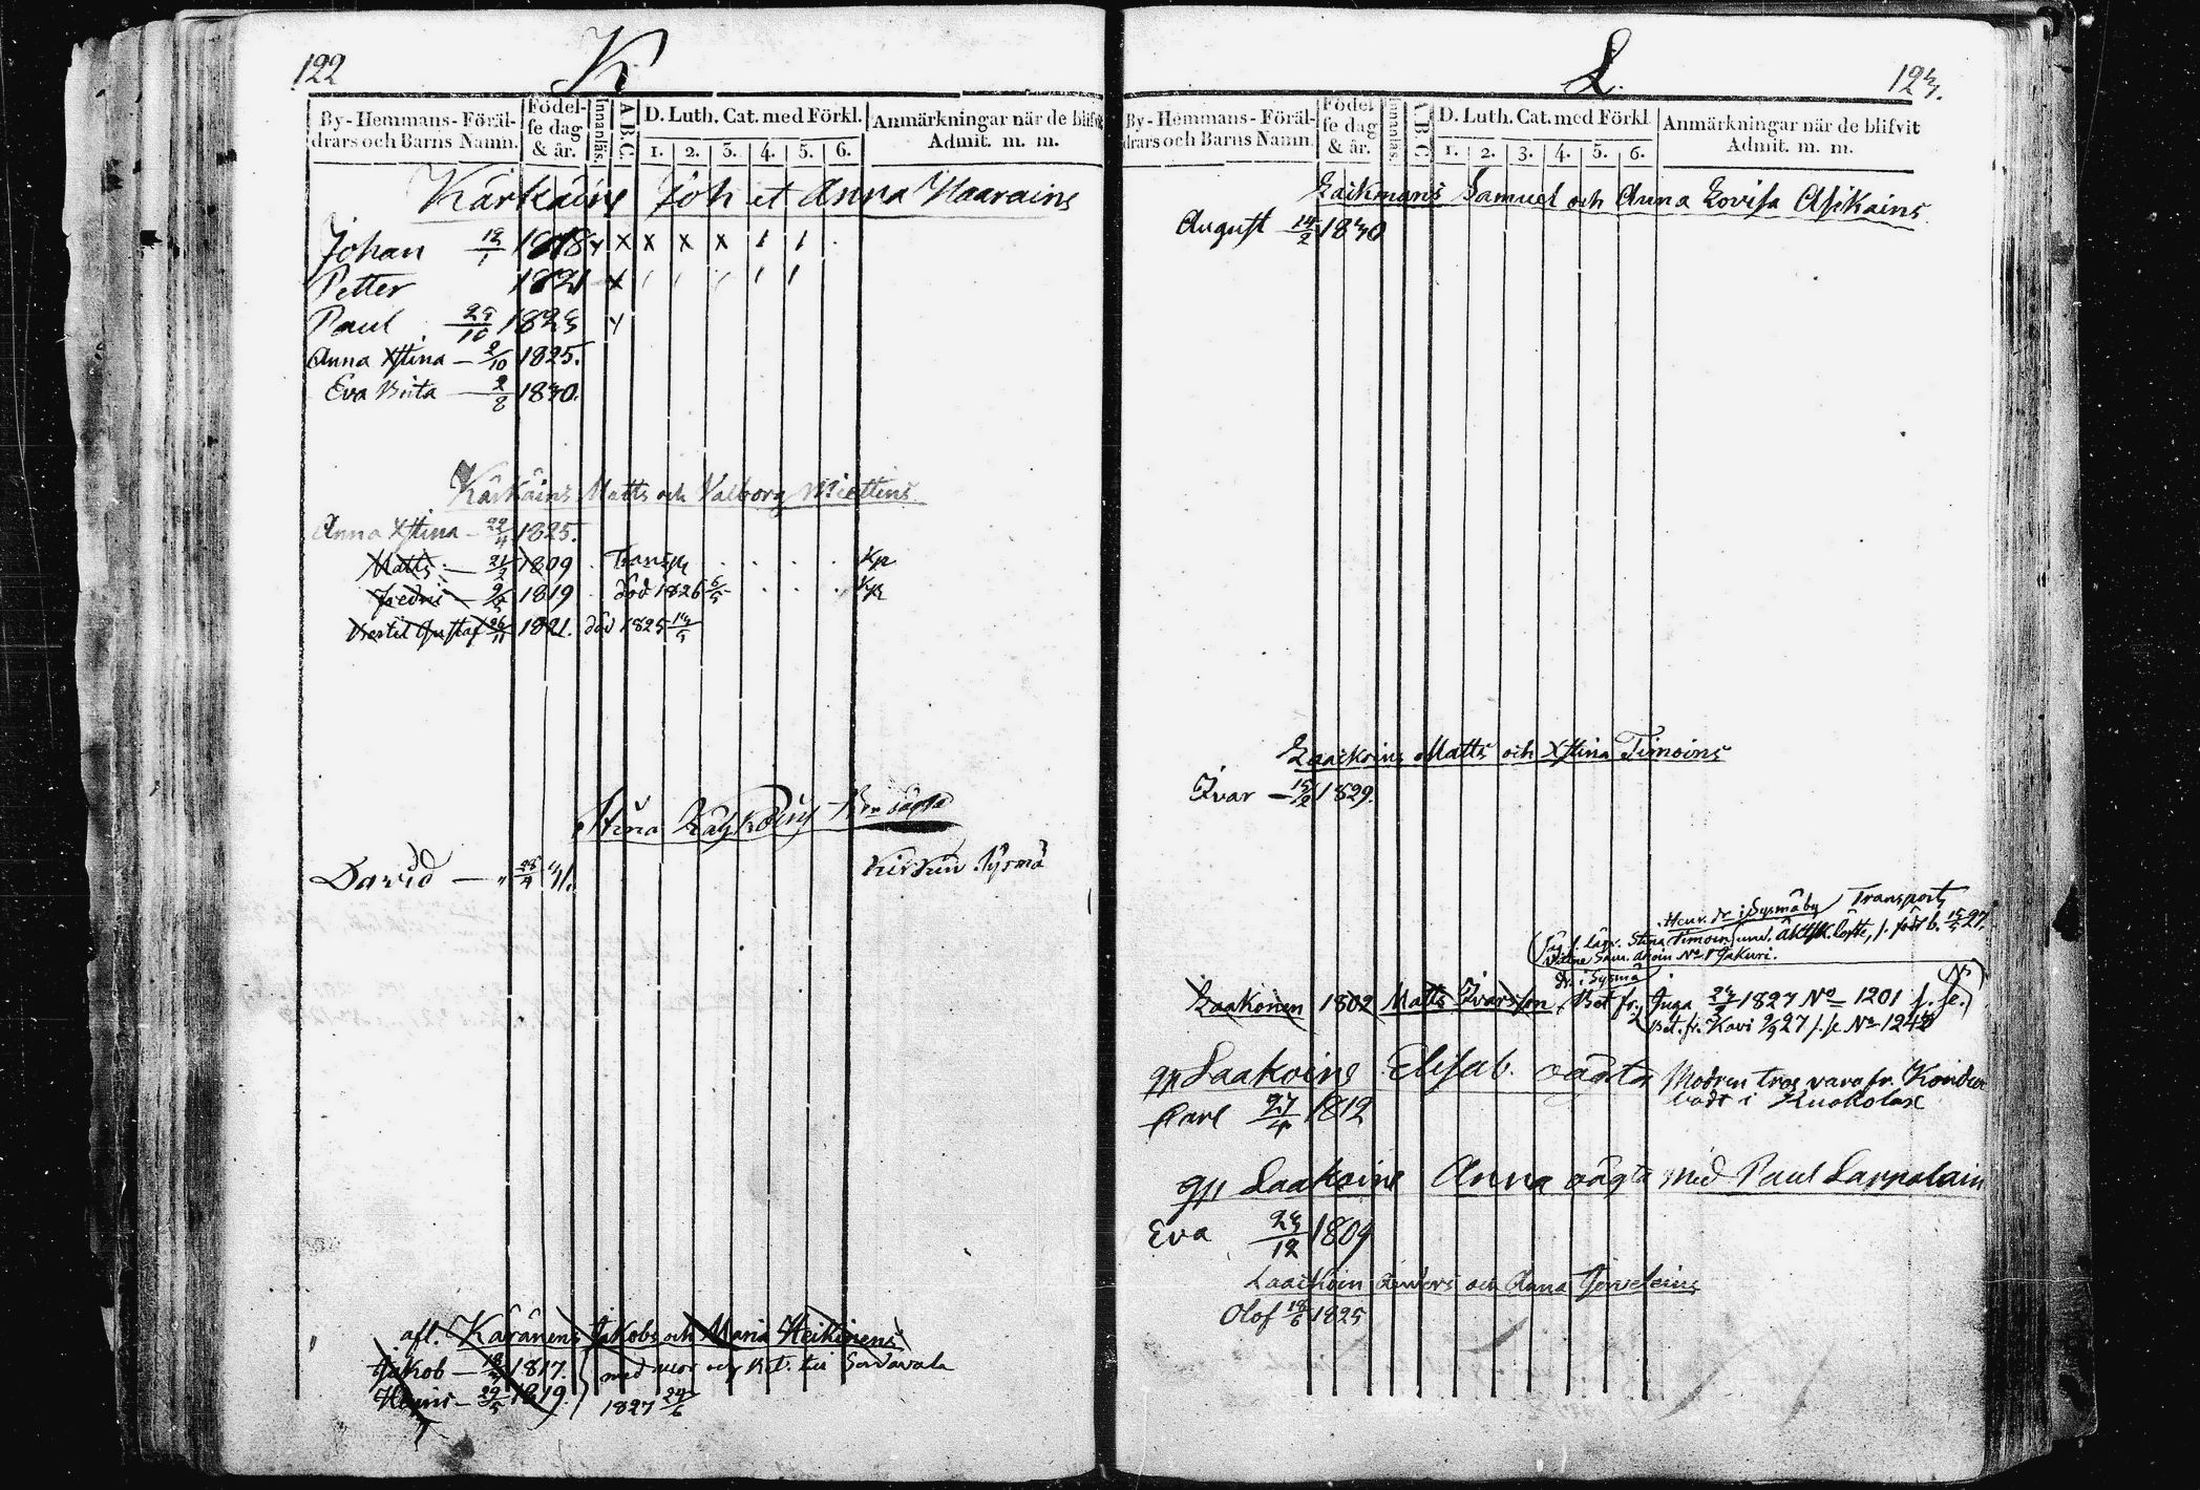 122
K
By-Hemmans-Föräl-
drars och Barns Namn.
Födel-
se dag
& år.
Innanläs.
A.B.C.
D. Luth. Cat. med Förkl.
1. 2. 3. 4. 5. 6.
Anmärkningar när de blifvit
Admit. m. m.
Kärkäins Joh et Anna Haarains
Johan 12/1 1818 x x x x x
Petter 1821 x
Paul 1823
Anna Xstina — 2/10 1825.
Eva Brita — 2/8 1830.
Kärkäins Matts och Valborg Miettins
Anna Xstina — 22/4 1825.
Matts — 21/2 1809 Transp Kp
Fredric — 1819 död 1826 6/5 Kp
Bertil Gustaf 26/11 1821. död 1825 13/5
Stina
David — 28/4 31.
afl. Karänens Jakobs och Maria Heikinens
Jakob — 1817. med mor och Bet. till Sordavala
Henric — 29/5 1819. 1827 24/6
L.
123.
By-Hemmans-Föräl-
drars och Barns Namn.
Födel-
se dag
& år.
Innanläs.
A.B.C.
D. Luth. Cat. med Förkl.
1. 2. 3. 4. 5. 6.
Anmärkningar när de blifvit
Admit. m. m.
Laikmans Samuel och Anna Lovisa Asikains
August 14/2 1830
Laaikoins Matts och Xstina Timoins
Ivar — 15/2 1829.
Henr. dr i Sysmäby Transport
Stina Timoin
dr. i Sysmä
Laakonen 1802 Matts Ivarsson Bet fr. Juga 23/2 1827 No 1201 f. fe.
Bet. fr. Kavi 2/9 27 No 1248
Laakoins Elisab. oägta Modren tros vara fr.
Carl 27/4 1812 i Kuokolax
Laakoins Anna oägta med Paul Lappalain
Eva 23/12 1809
Laaikoin Anders och Anna
Olof 18/6 1825